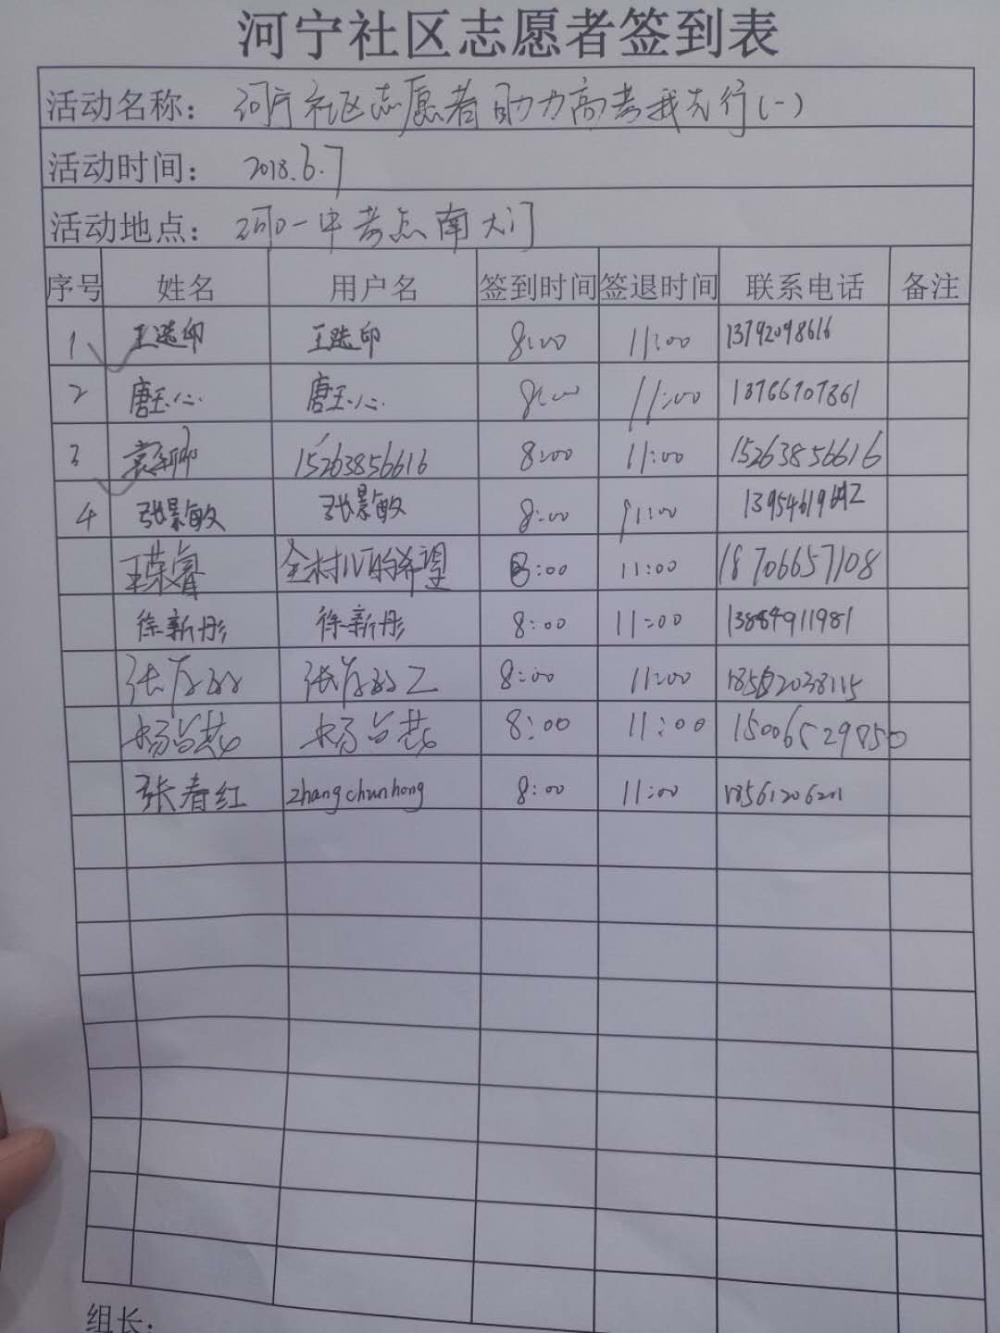 河宁社区志愿者签到表
活动名称： 河宁社区志愿者助力高考我先行(一)
活动时间： 2018.6.7
活动地点： 河口一中考点南大门
序号 姓名 用户名 签到时间 签退时间 联系电话 备注
1 8:00 11:00 13792098616
2 唐玉心 唐玉心 8:00 11:00 13766707861
3 15263856616 8:00 11:00 15263856616
4 张景敏 张景敏 8:00 11:00
王荣睿 全村儿的希望 8:00 11:00 18706657108
徐新彤 徐新彤 8:00 11:00
8:00 11:00
8:00 11:00 15006529850
张春红 zhangchunhong 8:00 11:00 18561206201
组长：